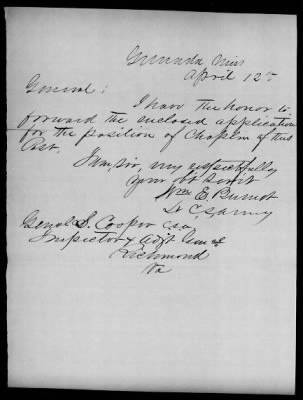 Grenada Miss
April 12th
General:
I have the honor to
forward the enclosed application
for the position of Chaplin of this
Post.
I am, sir, very respectfully
Your obt servt
Wm E. Burnet
Lt CS army
Genol S. Cooper CSA
Inspector & Adjt Gen
Richmond
Va